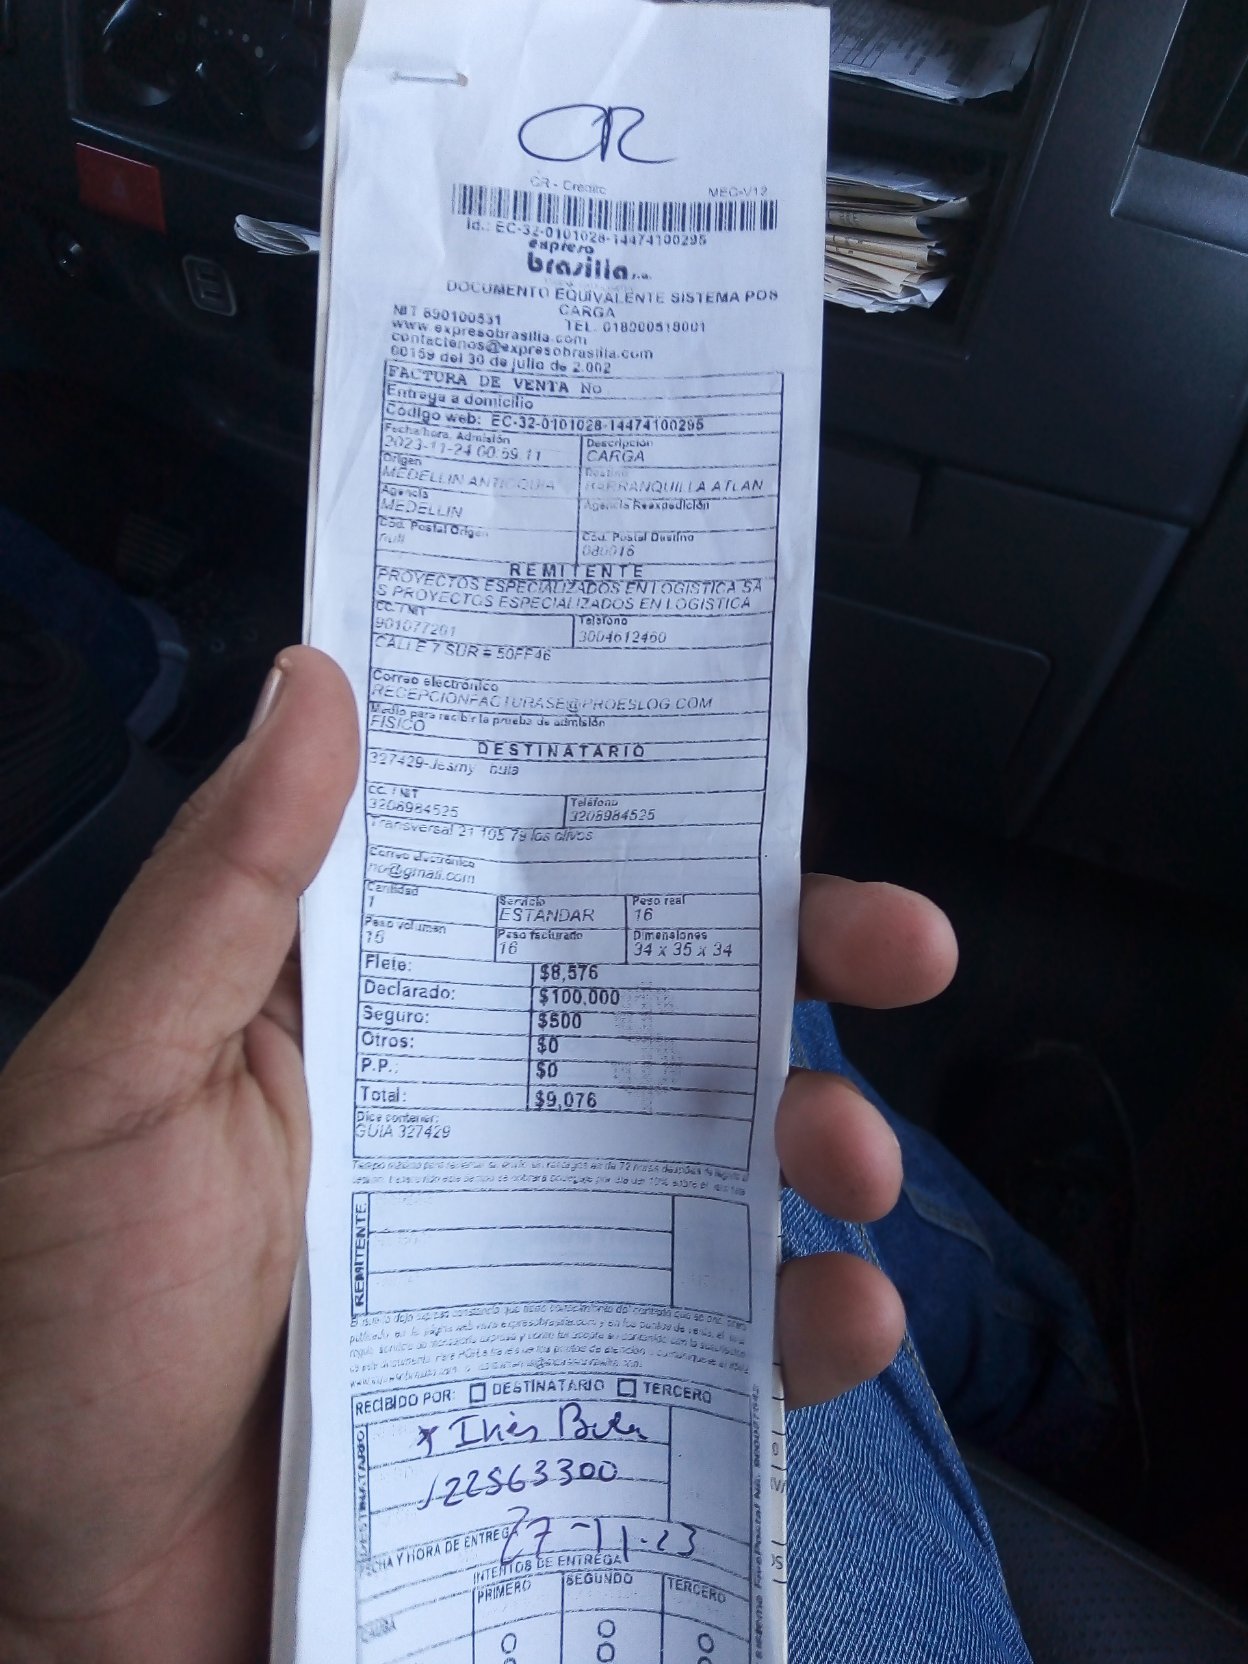 CR
CR - Crédito MEC-V12
Id.: EC-32-0101028-14474100295
expreso
brasilia s.a.
DOCUMENTO EQUIVALENTE SISTEMA POS
CARGA
NIT 890100531 TEL. 018000518001
www.expresobrasilia.com
contactenos@expresobrasilia.com
00159 del 30 de julio de 2.002
FACTURA DE VENTA No
Entrega a domicilio
Código web: EC-32-0101028-14474100295
Fecha/hora. Admisión Descripción
2023-11-24 00:59:11 CARGA
Origen Destino
MEDELLIN ANTIOQUIA BARRANQUILLA ATLAN
Agencia Agencia Reexpedición
MEDELLIN
Cód. Postal Origen Cód. Postal Destino
null 080016
REMITENTE
PROYECTOS ESPECIALIZADOS EN LOGISTICA SA
S PROYECTOS ESPECIALIZADOS EN LOGISTICA
CC. / NIT Teléfono
901077201 3004612460
CALLE 7 SUR # 50FF46
Correo electrónico
RECEPCIONFACTURASE@PROESLOG.COM
Medio para recibir la prueba de admisión
FISICO
DESTINATARIO
327429-Jesmy bula
CC. / NIT Teléfono
3208984525 3208984525
Transversal 21 105 79 los olivos
Correo electrónico
no@gmail.com
Cantidad Servicio Peso real
1 ESTANDAR 16
Peso volumen Peso facturado Dimensiones
16 16 34 x 35 x 34
Flete: $8,576
Declarado: $100,000
Seguro: $500
Otros: $0
P.P.: $0
Total: $9,076
Dice contener:
GUIA 327429
REMITENTE
RECIBIDO POR: DESTINATARIO TERCERO
DESTINATARIO
* Inés Bula
22563300
FECHA Y HORA DE ENTREGA 27-11-23
INTENTOS DE ENTREGA
PRIMERO SEGUNDO TERCERO